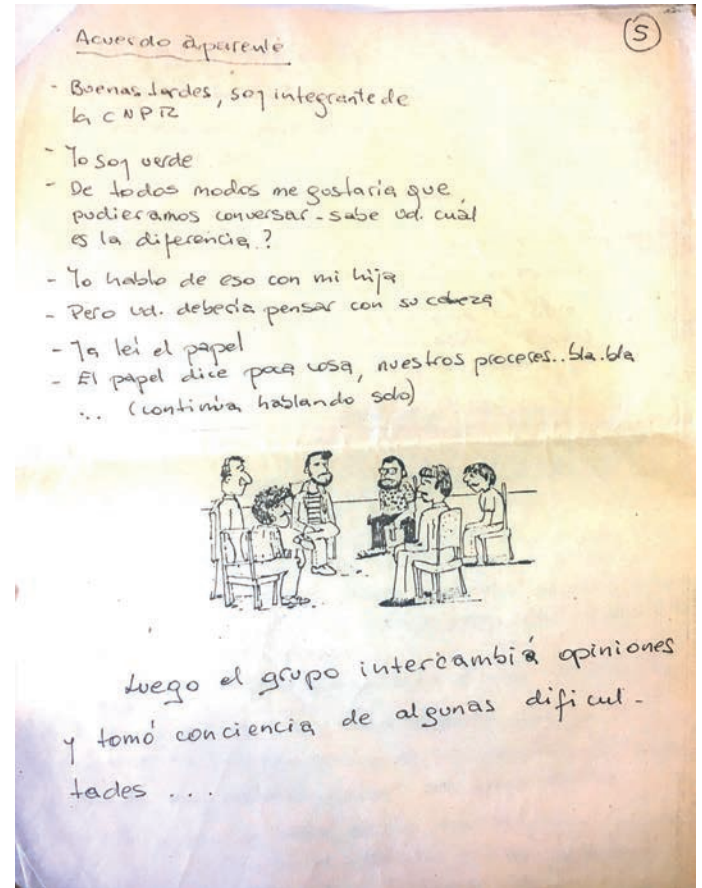 5
Acuerdo aparente
- Buenas tardes, soy integrante de
la CNPR
- Yo soy verde
- De todos modos me gustaria que
pudieramos conversar - sabe ud. cuál
es la diferencia?
- Yo hablo de eso con mi hija
- Pero ud. debería pensar con su cabeza
- Ya leí el papel
- El papel dice poca cosa, nuestros proceres.. bla.bla
... (continúa hablando solo)
Luego el grupo intercambió opiniones
y tomó conciencia de algunas dificul-
tades ...